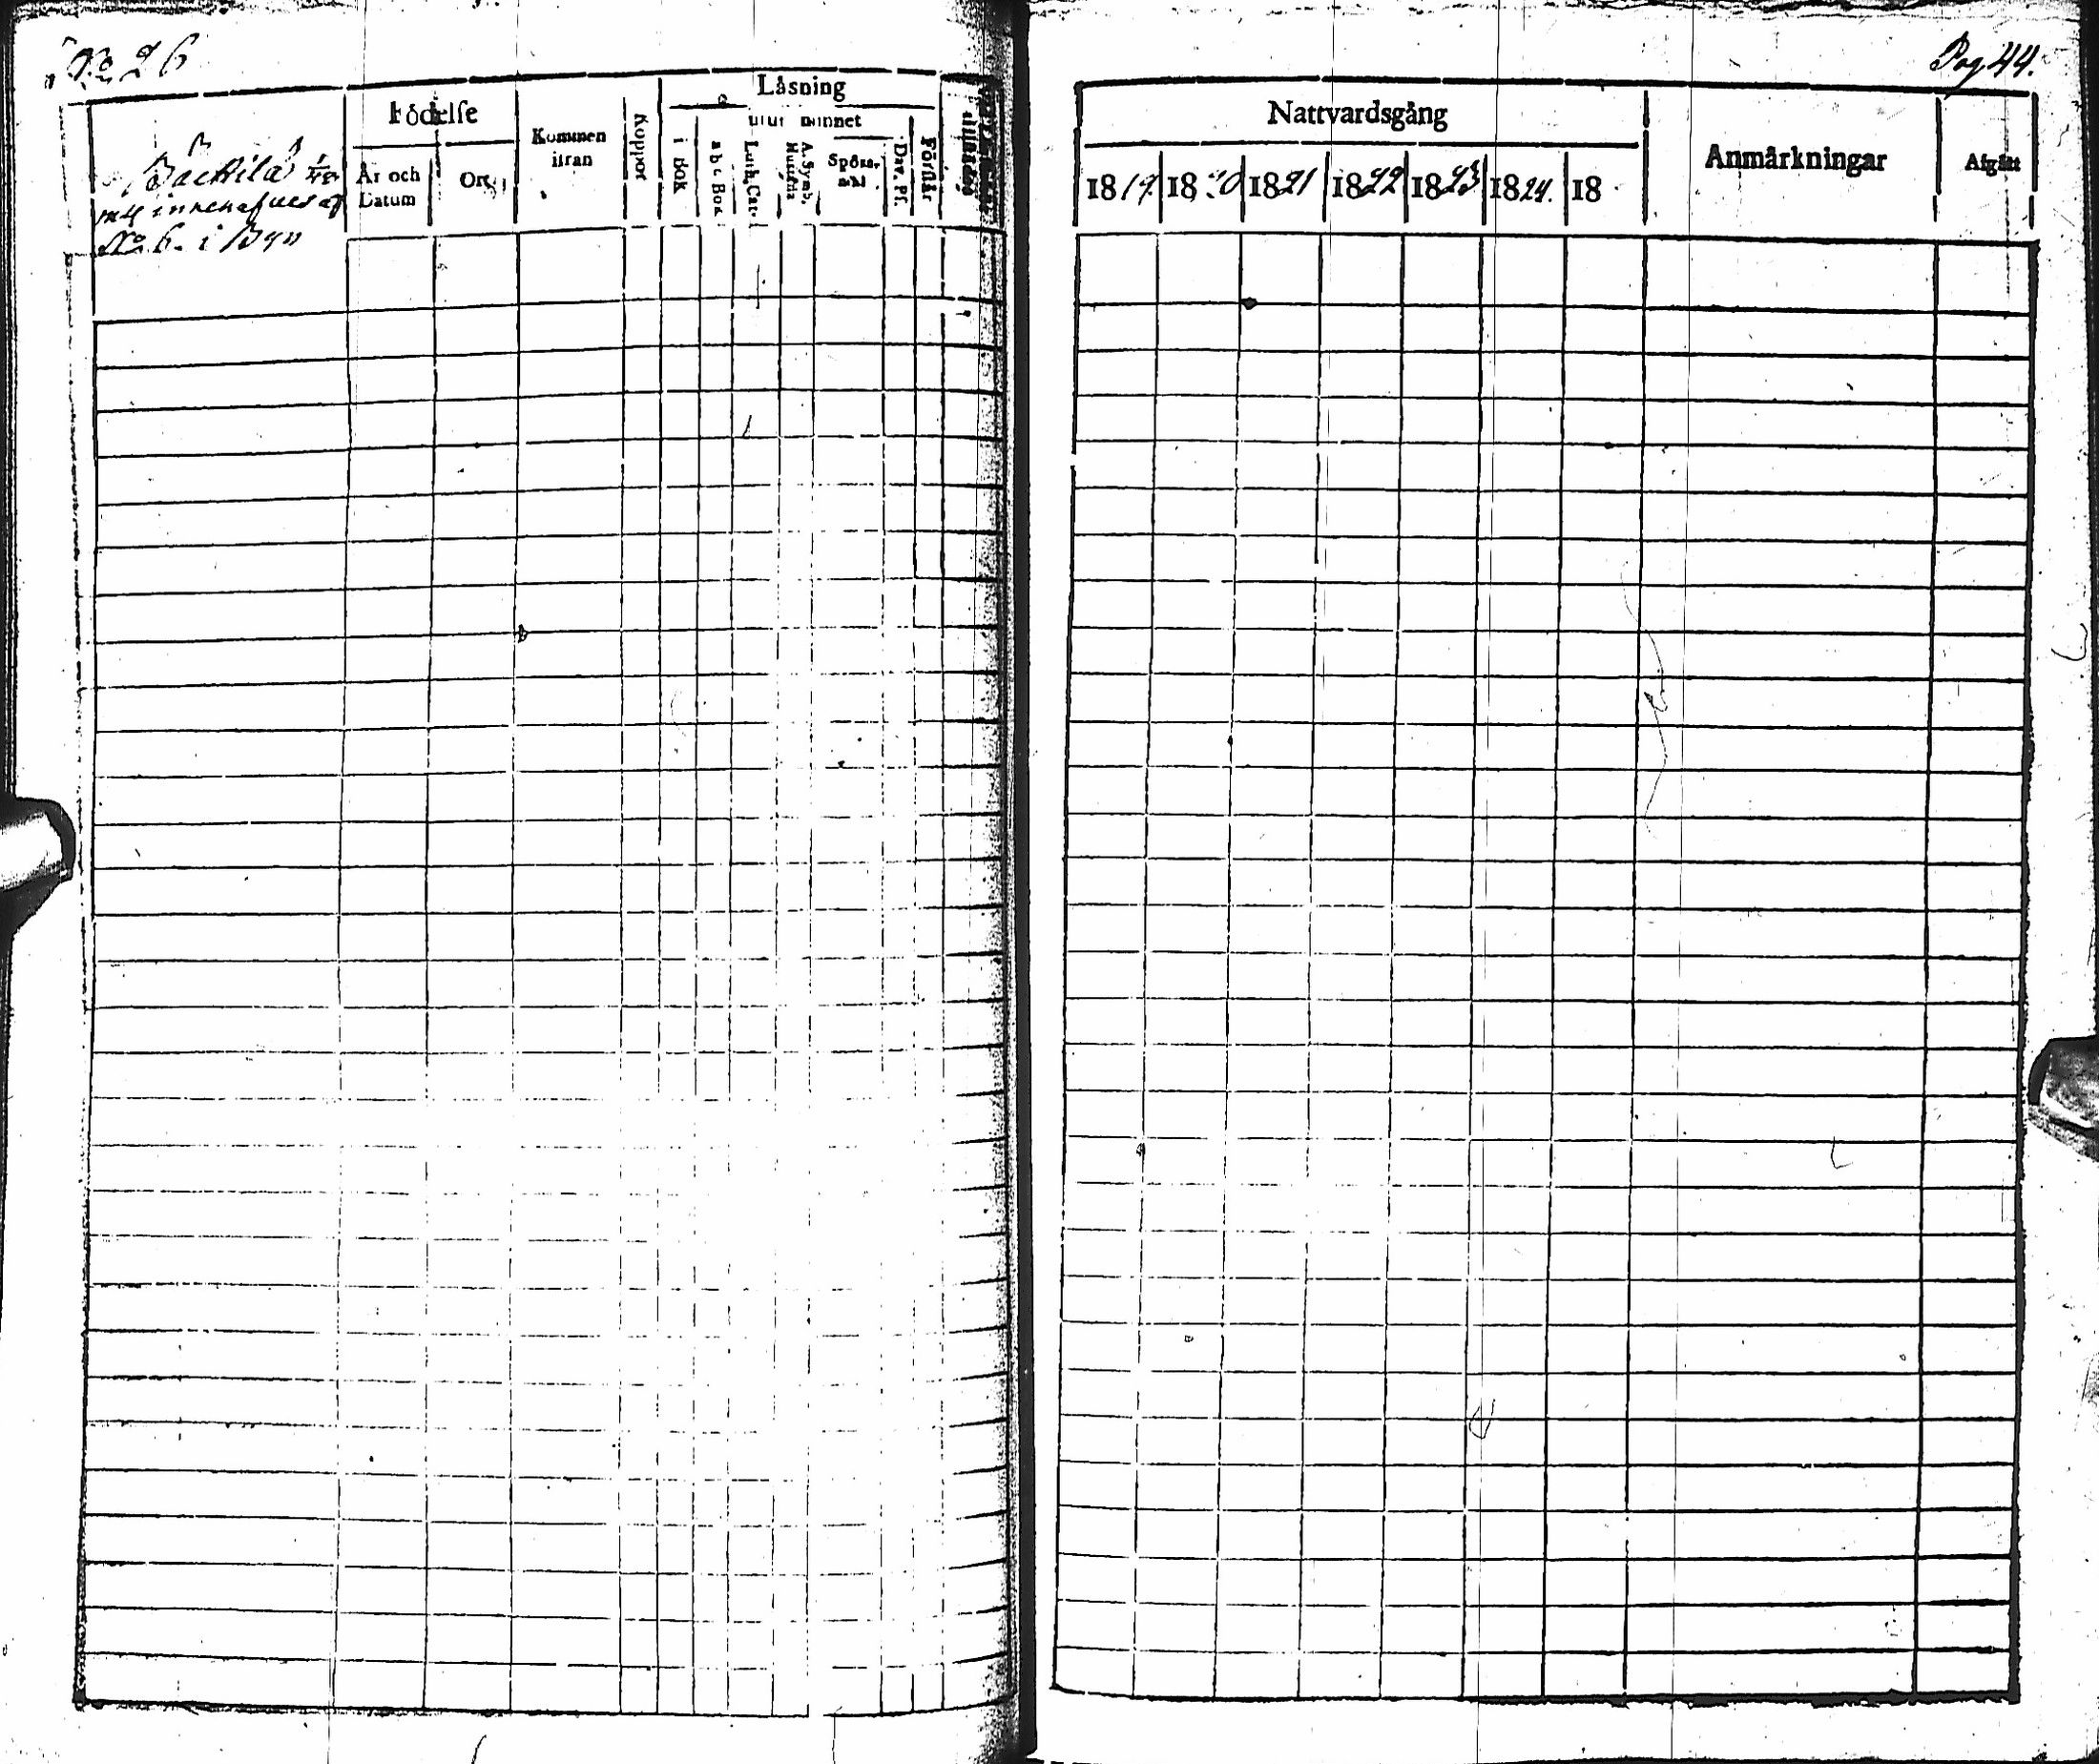 No 26
Pag 44.
Födelse
Läsning
utur minnet
Kommen
ifrån
Koppor
År och
Datum
Ort
i Bok
abc Bok
Luth. Cat.
A. Symb.
Hustafla
Spörs-
mål
Dav. Ps.
Förstår
Backila
innehafves af
No 6. i Byn
Nattvardsgång
Anmärkningar
Afgått
1819. 1820 1821 1822 1823 1824. 18